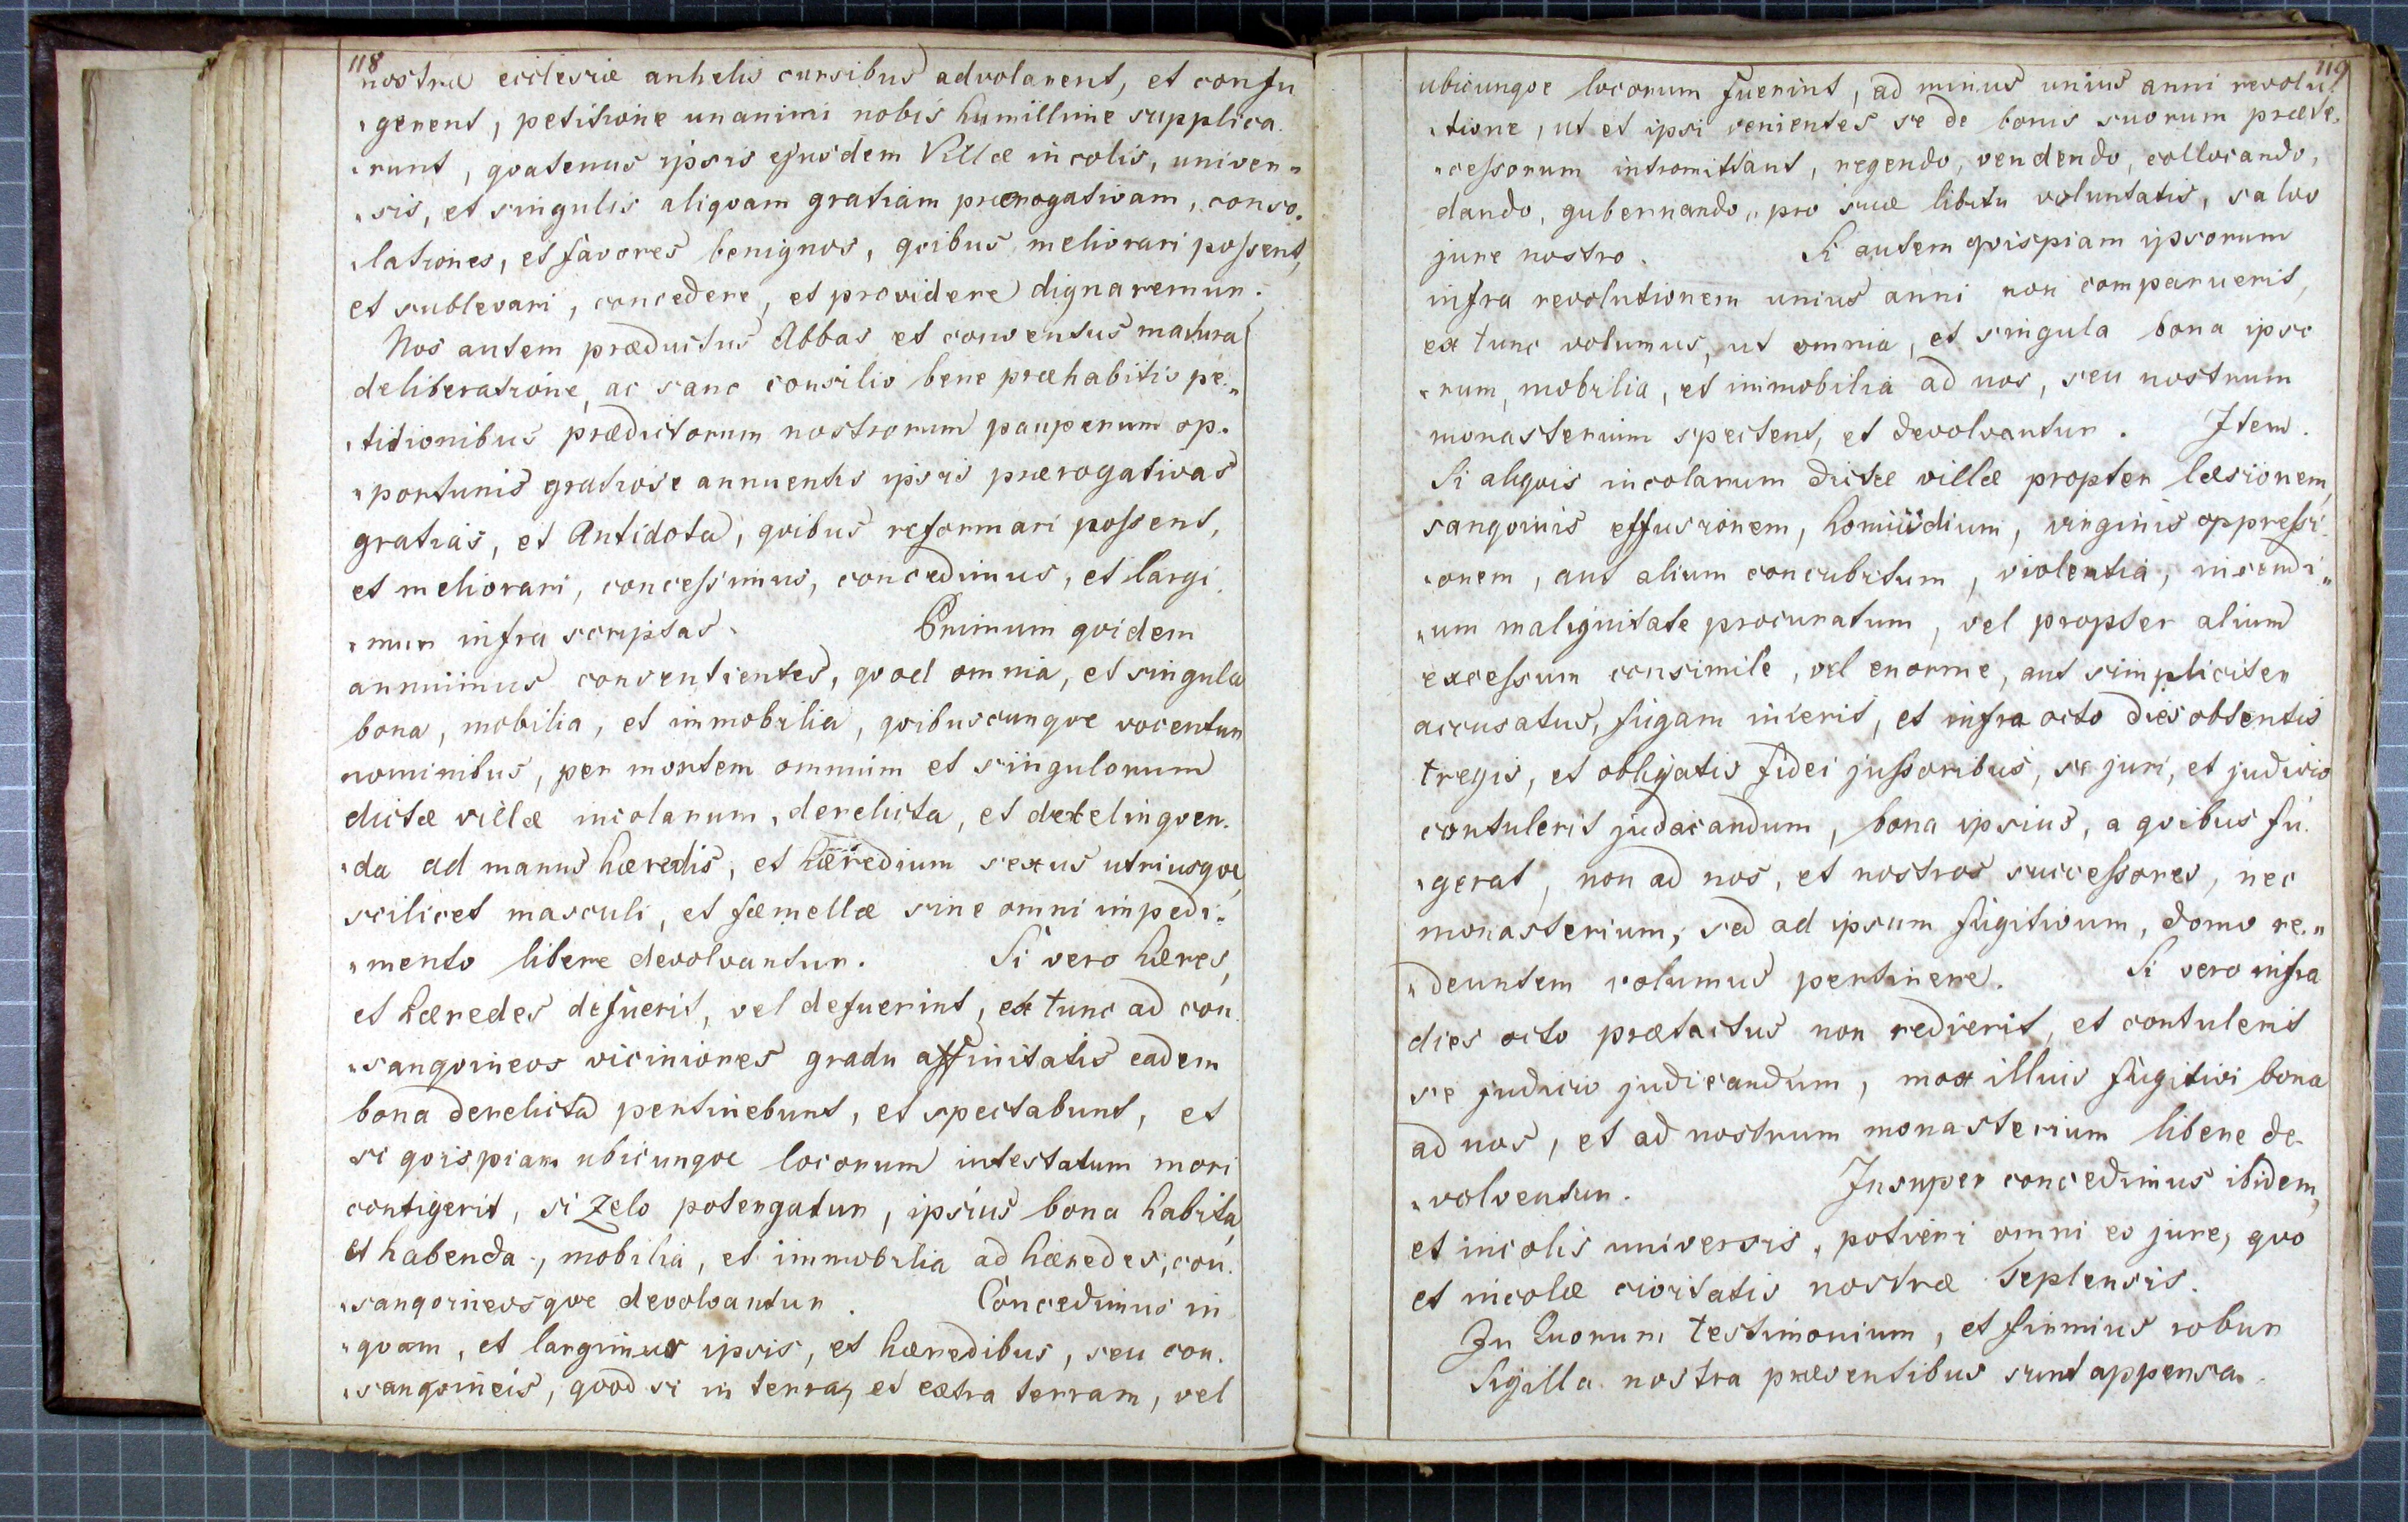 118
nostræ ecclesiæ anhelis cursibus advolarent, et confu
gerent, petitione unanimi nobis humillime supplica
runt, qvatenus ipsis ejusdem Villæ incolis, univer„
sis, et singulis aliqvam gratiam prærogativam, conso„
lationes, et favores benignos, qvibus meliorari possent,
et sublevari, concedere, et providere dignaremur.
Nos autem prædictus Abbas et conventus matura
deliberatione, ac sanc consilio bene præhabitis pe„
titionibus prædictorum nostrorum pauperum op„
portunis gratiose annuentis ipsis prærogativas
gratias, et Antidota, qvibus reformari possent,
et meliorari, concessimus, concedimus, et largi
mur infra scriptas. Primum qvidem
annuimus consentientes, qvod omnia, et singula
bona, mobilia, et immobilia, qvibuscunqve vocentur
nominibus, per mortem omnium et singulorum
dictæ villæ incolarum, derelicta, et derelinqven„
da ad manus hæredis, et hæredium sexus utriusqve,
scilicet masculi, et fæmellæ sine omni impedi„
mento libere devolvantur. Si vero hæres,
et hæredes defuerit, vel defuerint, ex tunc ad con
sangvineos viciniores gradu affinitatis eadem
bona derelicta pertinebunt, et spectabunt, et
si qvispiam ubicunqve locorum intestatum mori
contigerit, si Zelo potergatur, ipsius bona habita,
et habenda, mobilia, et immobilia ad hæredes, con„
sangvineosqve devolvantur. Concedimus in
qvam, et largimur ipsis, et hæredibus, seu con„
sangvineis, qvod si in terra, et extra terram, vel
119
ubicunqve locorum fuerint, ad minus unius anni revolu„
tione, ut et ipsi venientes se de bonis suorum præte„
cessorum intromittant, regendo, vendendo, collocando,
dando, gubernando, pro suæ libitu voluntatis, salvo
jure nostro. Si autem qvispiam ipsorum
infra revolutionem unius anni non comparuerit,
ex tunc volumus, ut omnia, et singula bona ipso
rum, mobilia, et immobilia ad nos, seu nostrum
monasterium spectent, et devolvantur. Item.
Si aliqvis incolarum dictæ villæ propter læsionem,
sangvinis effusionem, homicidium, virginis oppressi
onem, aut alium concubitum, violentia, incendi„
um malignitate procuratum, vel propter alium
excessum consimile, vel enorme, aut simpliciter
accusatus, fugam inierit, et infra octo dies obtentis
tregis, et obligatis fidei jussoribus, se juri, et judicio
contulerit judacandum, bona ipsius, a qvibus fu„
gerat, non ad nos, et nostros successores, nec
monasterium, sed ad ipsum fugitivum, domo re„
deuntem volumus pertinere. Si vero infra
dies octo prætactus non redierit, et contulerit
se judicio judicandum, mox illius fugitivi bona
ad nos, et ad nostrum monasterium libere de
volventur. Insuper concedimus ibidem,
et incolis universis, potieri omni eo jure, qvo
et incolæ civitatis nostræ Teplensis.
In Quorum testimonium, et firmius robur
Sigilla nostra præsentibus sunt appensa.